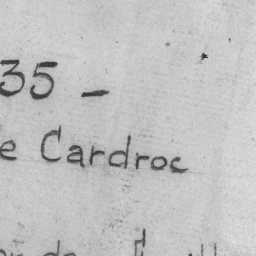 35 –
e Cardroc